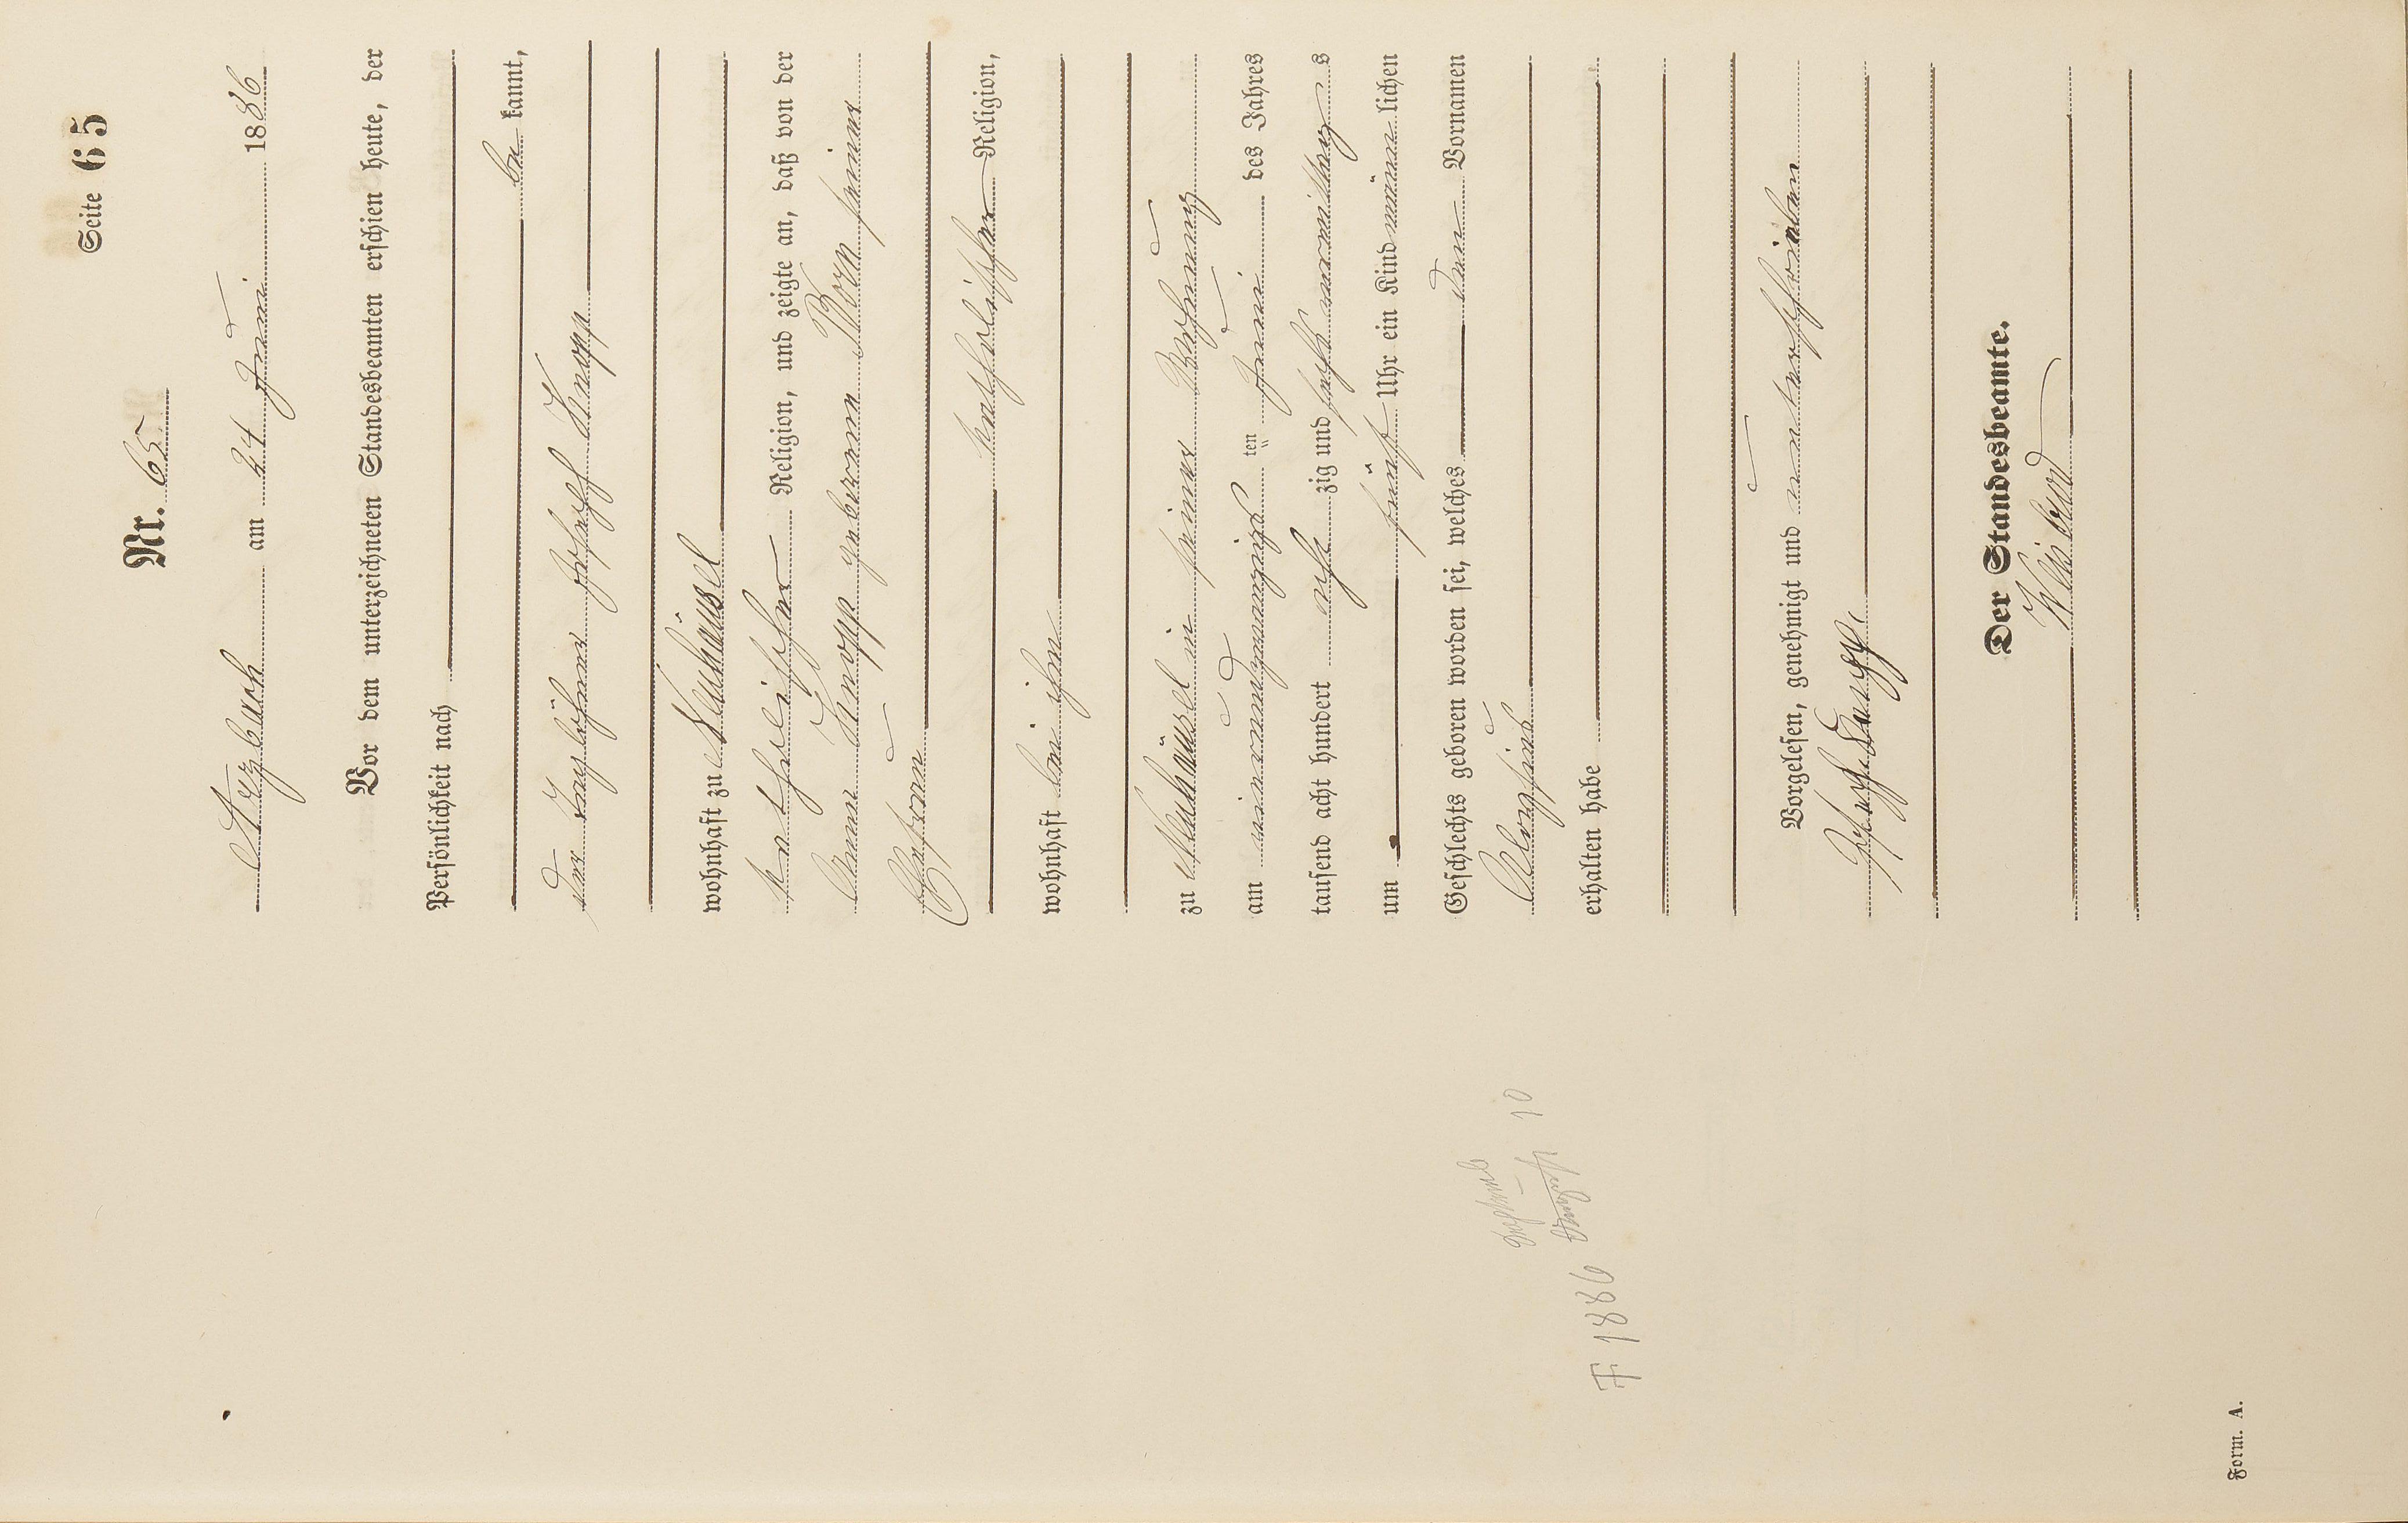 Seite 65
Nr. 65
Arzbach am 24 Juni 1886
Vor dem unterzeichneten Standesbeamten erschien heute, der
Persönlichkeit nach
be kannt,
der Taglöhner Joseph Knopp
wohnhaft zu Neuhäusel
katholischer Religion, und zeigte an, daß von der
Anna Knopp geborenen Born seiner
Ehefrau
katholischer Religion,
wohnhaft bei ihm
zu Neuhäusel in seiner Wohnung
am vierundzwanzigsten Juni des Jahres
tausend acht hundert acht zig und sechs vormittags
um fünf Uhr ein Kind männlichen
Geschlechts geboren worden sei, welches den Vornamen
erhalten habe
Vorgelesen, genehmigt und unterschrieben
Joseph Knopp
Der Standesbeamte.
F 1886
10
Form. A.